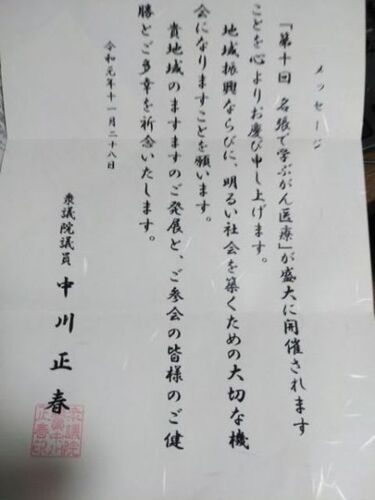 メッセージ
「第十回 名張で学ぶがん医療」が盛大に開催されます
ことを心よりお慶び申し上げます。
地域振興ならびに、明るい社会を築くための大切な機
会になりますことを願います。
貴地域のますますのご発展と、ご参会の皆様のご健
勝とご多幸を祈念いたします。
令和元年十一月二十八日
衆議院議員 中川正春